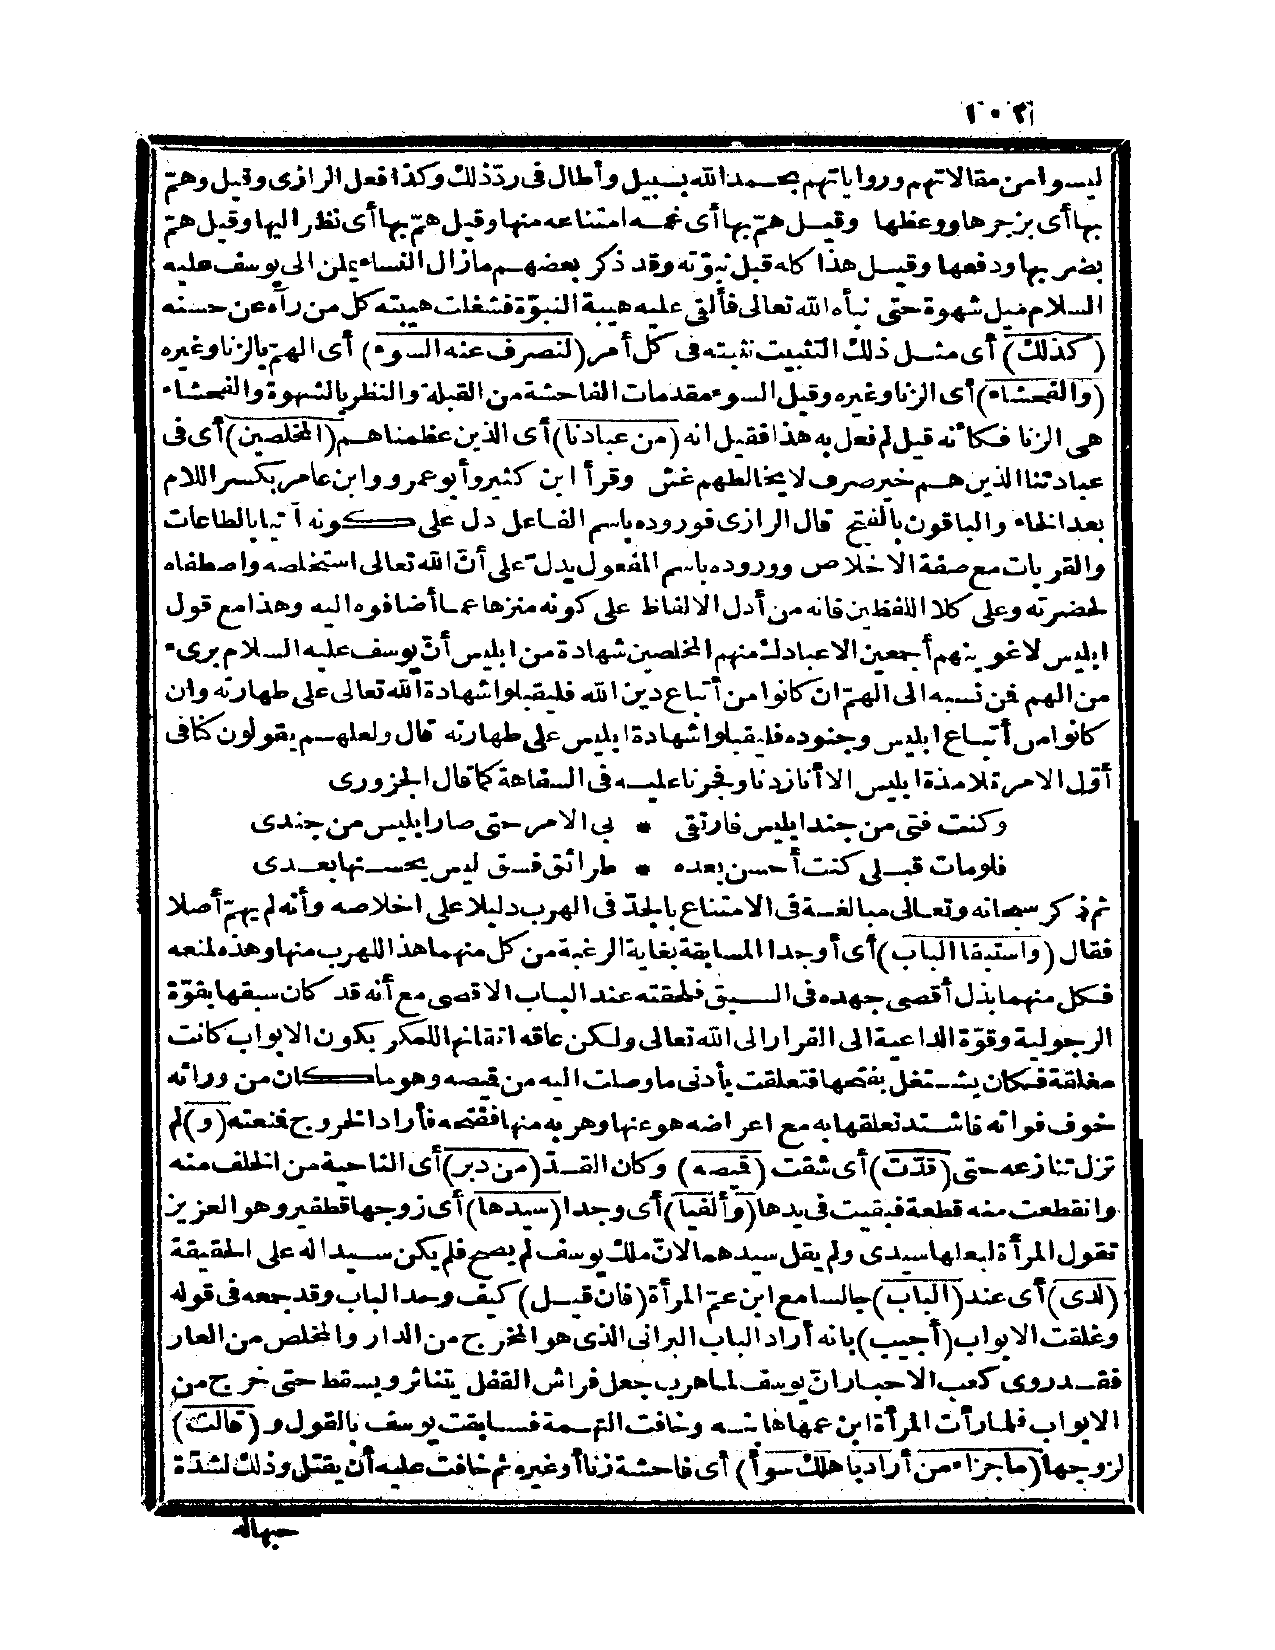 ١٠٢
ليسوا من مقالاتهم ورواياتهم بحمد الله بسبيل وأطال فى ردّ ذلك وكذا فعل الرازى وقيل وهمّ
بها أى بزجرها ووعظها وقيل همّ بها أى غمه امتناعه منها وقيل همّ بها أى نظر اليها وقيل همّ
بضربها ودفعها وقيل هذا كله قبل نبوّته وقد ذكر بعضهم مازال النساء يملن الى يوسف عليه
السلام ميل شهوة حتى نبأه الله تعالى فألقى عليه هيبة النبوّة فشغلت هيبته كل من رآه عن حسنه
(كذلك) أى مثل ذلك التثبيت نثبته فى كل أمر (لنصرف عنه السوء) أى الهمّ بالزنا وغيره
(والفحشاء) أى الزنا وغيره وقيل السوء مقدمات الفاحشة من القبلة والنظر بالشهوة والفحشاء
هى الزنا فكأنه قيل لم فعل به هذا فقيل انه (من عبادنا) أى الذين عظمناهم (المخلصين) أى فى
عبادتنا الذين هم خير صرف لا يخالطهم غش وقرأ ابن كثير وأبو عمرو وابن عامر بكسر اللام
بعد الخاء والباقون بالفتح قال الرازى فوروده باسم الفاعل دل على كونه آتيا بالطاعات
والقربات مع صفة الاخلاص ووروده باسم المفعول يدلّ على أنّ الله تعالى استخلصه واصطفاه
لحضرته وعلى كلا اللفظين فانه من أدل الالفاظ على كونه منزها عما أضافوه اليه وهذا مع قول
ابليس لاغوينهم أجمعين الا عبادك منهم المخلصين شهادة من ابليس أنّ يوسف عليه السلام برىء
من الهم فمن نسبه الى الهمّ ان كانوا من أتباع دين الله فليقبلوا شهادة الله تعالى على طهارته وان
كانوا من أتباع ابليس وجنوده فليقبلوا شهادة ابليس على طهارته قال ولعلهم يقولون كنا فى
أوّل الامر تلامذة ابليس الا أنا زدنا وفجرنا عليه فى السفاهة كما قال الجزورى
وكنت فتى من جند ابليس فارتقى * بى الامر حتى صار ابليس من جندى
فلو مات قبلى كنت أحسن بعده * طرائق فسق ليس يحسنها بعدى
ثم ذكر سبحانه وتعالى مبالغة فى الامتناع بالجدّ فى الهرب دليلا على اخلاصه وأنه لم يهمّ أصلا
فقال (واستبقا الباب) أى أوجدا المسابقة بغاية الرغبة من كل منهما هذا للهرب منها وهذه لمنعه
فكل منهما بذل أقصى جهده فى السبق فلحقته عند الباب الاقصى مع أنه قد كان سبقها بقوّة
الرجولية وقوّة الداعية الى الفرار الى الله تعالى ولكن عاقه اتقانها للمكر بكون الابواب كانت
مغلقة فكان يشتغل بفتحها فتعلقت بأدنى ما وصلت اليه من قميصه وهو ما كان من ورائه
خوف فواته فاشتد تعلقها به مع اعراضه هو عنها وهربه منها ففتحه فأراد الخروج فمنعته (و) لم
تزل تنازعه حتى (قدّت) أى شقت (قميصه) وكان القدّ (من دبر) أى الناحية من الخلف منه
وانقطعت منه قطعة فبقيت فى يدها (وألفيا) أى وجدا (سيدها) أى زوجها قطفير وهو العزيز
تقول المرأة لبعلها سيدى ولم يقل سيدهما لانّ ملك يوسف لم يصح فلم يكن سيدا له على الحقيقة
(لدى) أى عند (الباب) جالسا مع ابن عمّ المرأة (فان قيل) كيف وحد الباب وقد جمعه فى قوله
وغلقت الابواب (أجيب) بانه أراد الباب البرانى الذى هو المخرج من الدار والمخلص من العار
فقد روى كعب الاحبار انّ يوسف لما هرب جعل فراش القفل يتناثر ويسقط حتى خرج من
الابواب فلما رأت المرأة ابن عمها هابته وخافت التهمة فسابقت يوسف بالقول و (قالت)
لزوجها (ما جزاء من أراد باهلك سوأ) أى فاحشة زنا أو غيره ثم خافت عليه أن يقتل وذلك لشدّة
حبهاله